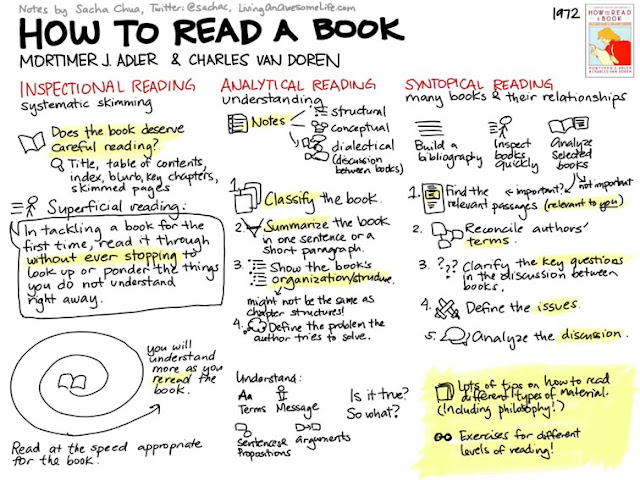 Notes by Sacha Chua, Twitter: @sachac, LivingAnAwesomeLife.com
HOW TO READ A BOOK
MORTIMER J. ADLER & CHARLES VAN DOREN
1972
HOW TO READ
A BOOK
MORTIMER J. ADLER
& CHARLES VAN DOREN
INSPECTIONAL READING
systematic skimming
Does the book deserve
careful reading?
Title, table of contents,
index, blurb, key chapters,
skimmed pages
Superficial reading:
In tackling a book for the
first time, read it through
without ever stopping to
look up or ponder the things
you do not understand
right away.
you will
understand
more as you
reread the
book.
Read at the speed appropriate
for the book!
ANALYTICAL READING
understanding
Notes
structural
conceptual
dialectical
(discussion
between books)
1. Classify the book.
2. Summarize the book
in one sentence or a
short paragraph.
3. Show the book's
organization/structure.
might not be the same as
chapter structures!
4. Define the problem the
author tries to solve.
Understand:
Aa
Terms Message
Sentences & arguments
Propositions
Is it true?
So what?
SYNTOPICAL READING
many books & their relationships
Build a
bibliography
Inspect
books
quickly
Analyze
selected
books
1. Find the
relevant passages
important?
not important
(relevant to you)
2. Reconcile authors'
terms.
3. ??? Clarify the key questions
in the discussion between
books.
4. Define the issues.
5. Analyze the discussion.
Lots of tips on how to read
different types of material.
(Including philosophy!)
Exercises for different
levels of reading!